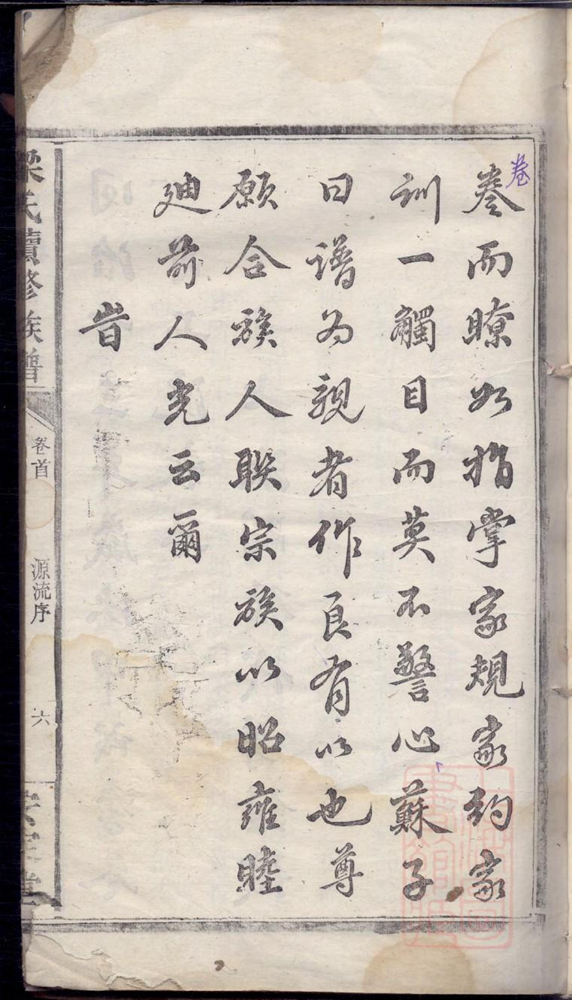 卷
卷而瞭如指掌家規家約家
訓一觸目而莫不警心蘇子
曰譜為親者作良有以也尊
願合族人聯宗族以昭雍睦
廸前人光云爾
旹
梁氏續修族譜
卷首
源流序
六